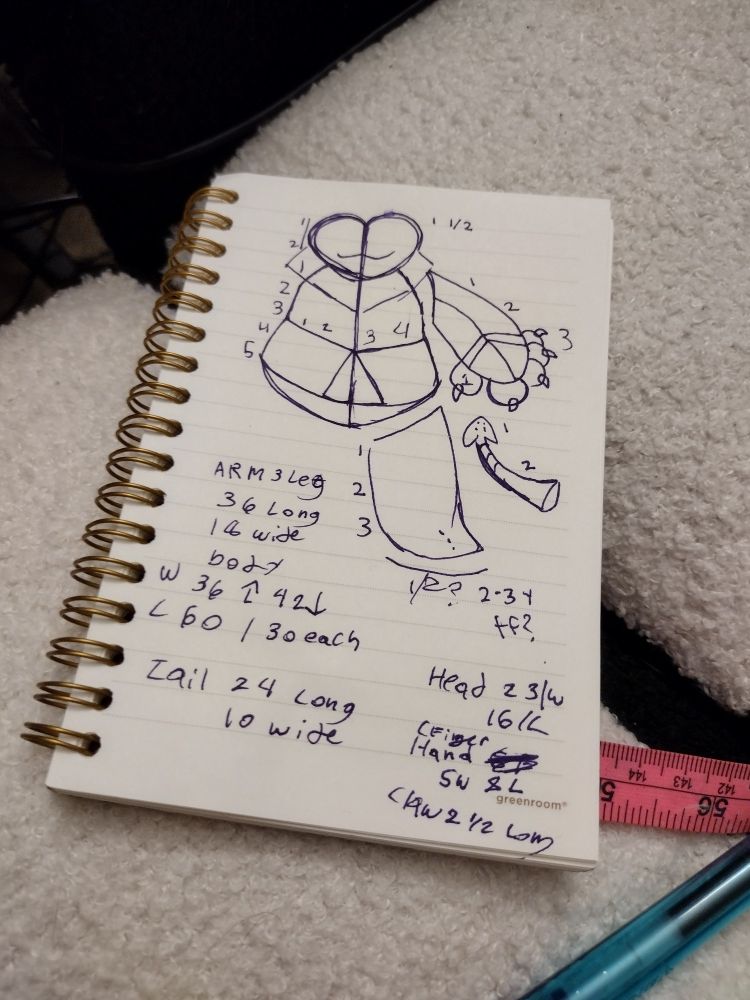 1 1 1/2
2
1 1
2 2
3 3
4 1 2 3 4
5
1 1
2 2
3
ARM 3 Leg
36 Long
18 wide
body
W 36 ↑ 42↓
L 60 / 30 each
1/2? 2-3 4
ff?
Tail 24 Long
10 wide
Head 23/W
16/L
Hand
5W 8L
Claw 2 1/2 Long
greenroom®
144
143
142
56